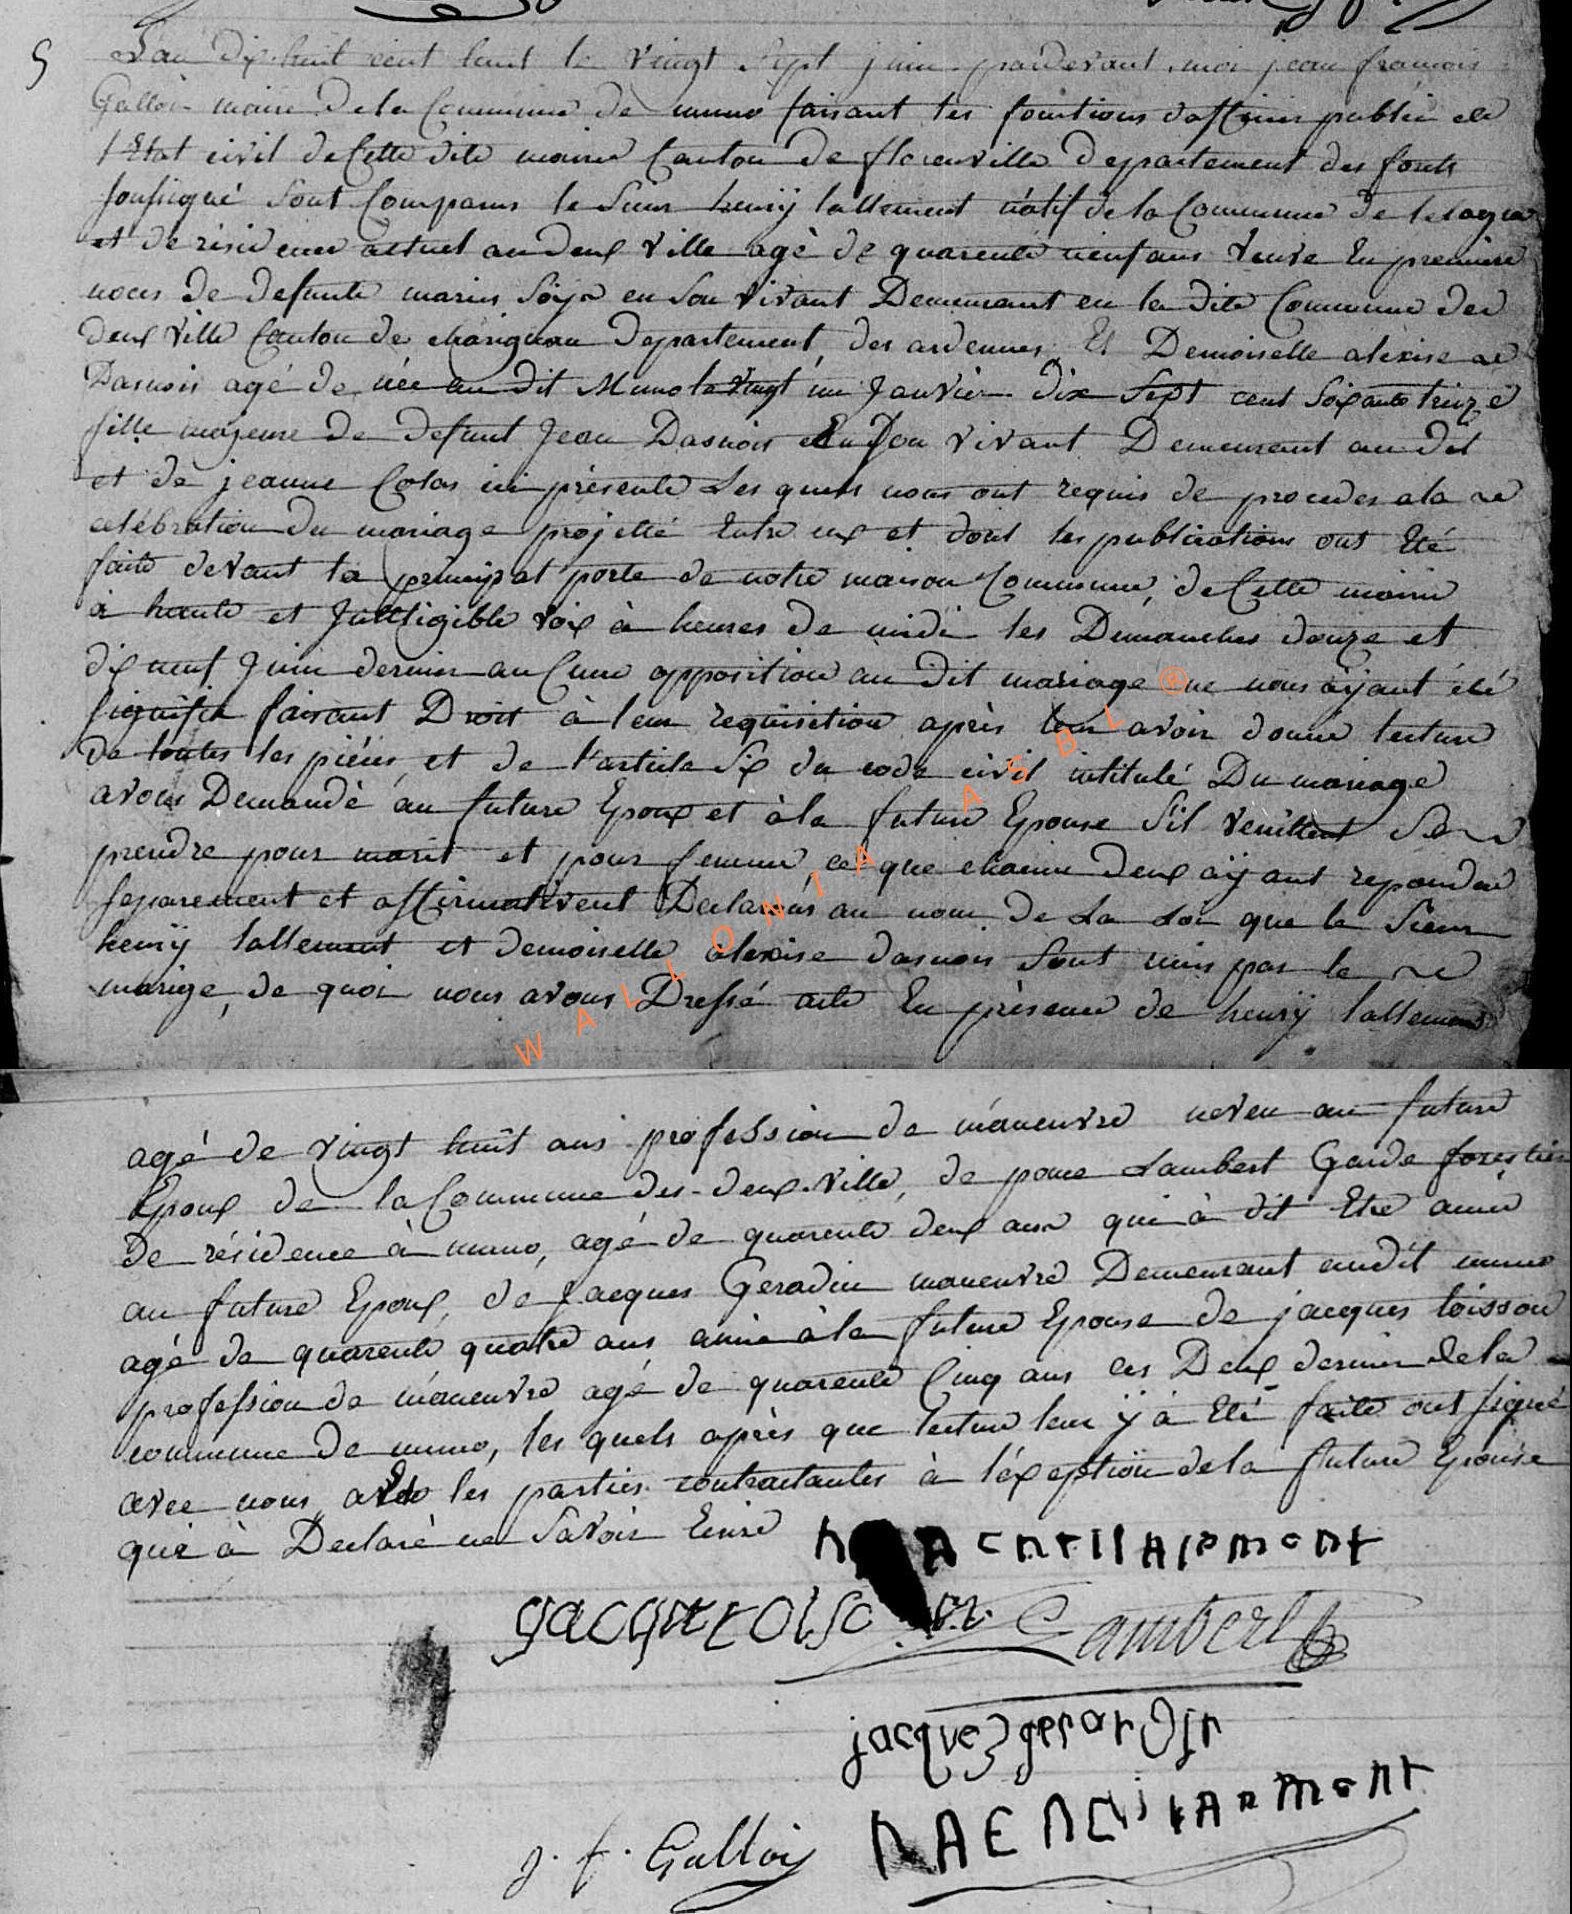 5
L'an dix huit cent huit le vingt sept juin pardevant moi jean francois
Gallois maire de la Commune de muno faisant les fonctions d'officier public de
l'Etat civil de Cette dite mairie Canton de florenville departement des forets
soussigné sont Comparus le sieur henrÿ lallement natif de la Commune de
et de résidence actuel au deux ville agé de quarente neuf ans veuve En premiere
noces de defunte marie en son vivant Demeurant en la dite Commune des
deux ville Canton de Departement des ardennes Et Demoiselle alexise
Dasnois agé de née au dit Muno le vingt un Janvier dix sept cent soixante treize
fille majeure de defunt Jean Dasnois En son vivant Demeurant au dit
et de jeanne Colas ici présente Les quels nous ont requis de proceder a la
celébration du mariage projetté Entre eux et dont les publications ont Eté
faite devant la principal porte de notre maison Commune, de Cette mairie
à haute et Intelligible voix à heures de midi les Dimanches douze et
dix neuf Juin dernier au Cune opposition au dit mariage ne nous aÿant été
signifié faisant Droit à leur requisition après leur avoir donné lecture
de toutes les piéces et de l'article Six du code civil intitulé Du mariage
avons Demandé au future Epoux et à la future Epouse s'il veuillent Se
prendre pour marit et pour femme, ce que chacun deux aÿant repondue
separement et affirmativent Declarons au nom de La Loi que le Sieur
henrÿ lallement et demoiselle alexise dasnois sont unis par le
marige, de quoi nous avons Dressé acte En présence de henrÿ lallement
WALLONIA ASBL ®
agé de vingt huit ans profession de maneuvre neveu au future
Epoux de la Commune des deux Ville, de Lambert Garde forestier
de résidence à muno, agé de quarente deux ans qui à dit Etre amie
au future Epoux, de Jacques Geradin maneuvre Demeurant audit muno
agé de quarente quatre ans amie à la future Epouse de jacques toisson
profession de maneuvre agé de quarente Cinq ans ces Deux dernier de la
commune de muno, les quels après que lecture leur ÿ à Eté faite ont signé
avec nous les parties contractantes à l'éxeption de la future Epouse
qui à Declaré ne Savoir Ecrire
Lambert
J. f. Gallois